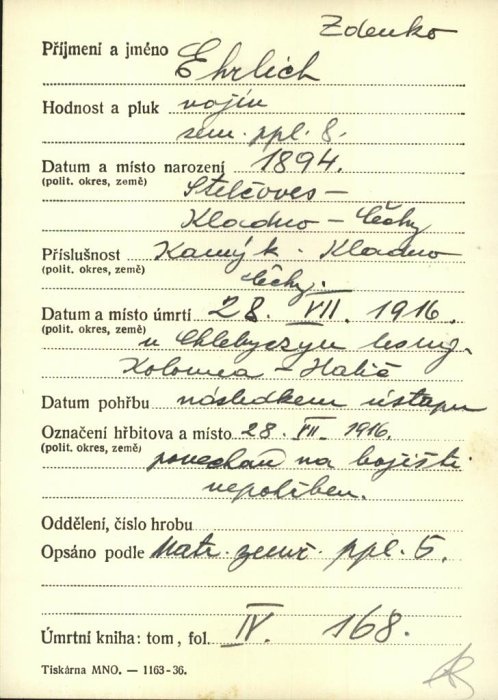 Zdenko
Příjmení a jméno Ehrlich
Hodnost a pluk vojín
zem. ppl. 8.
Datum a místo narození 1894.
(polit. okres, země) Stelčoves –
Kladno – Čechy
Příslušnost Kamýk - Kladno
(polit. okres, země) Čechy.
Datum a místo úmrtí 28. VII. 1916.
(polit. okres, země) u Chlebyczyn lesny.
Kolomea – Halič
Datum pohřbu následkem ústupu
Označení hřbitova a místo 28. VII. 1916.
(polit. okres, země) ponechán na bojišti
nepohřben.
Oddělení, číslo hrobu
Opsáno podle Matr. zemř. ppl. 5.
Úmrtní kniha: tom, fol. IV. 168.
Tiskárna MNO. — 1163-36.